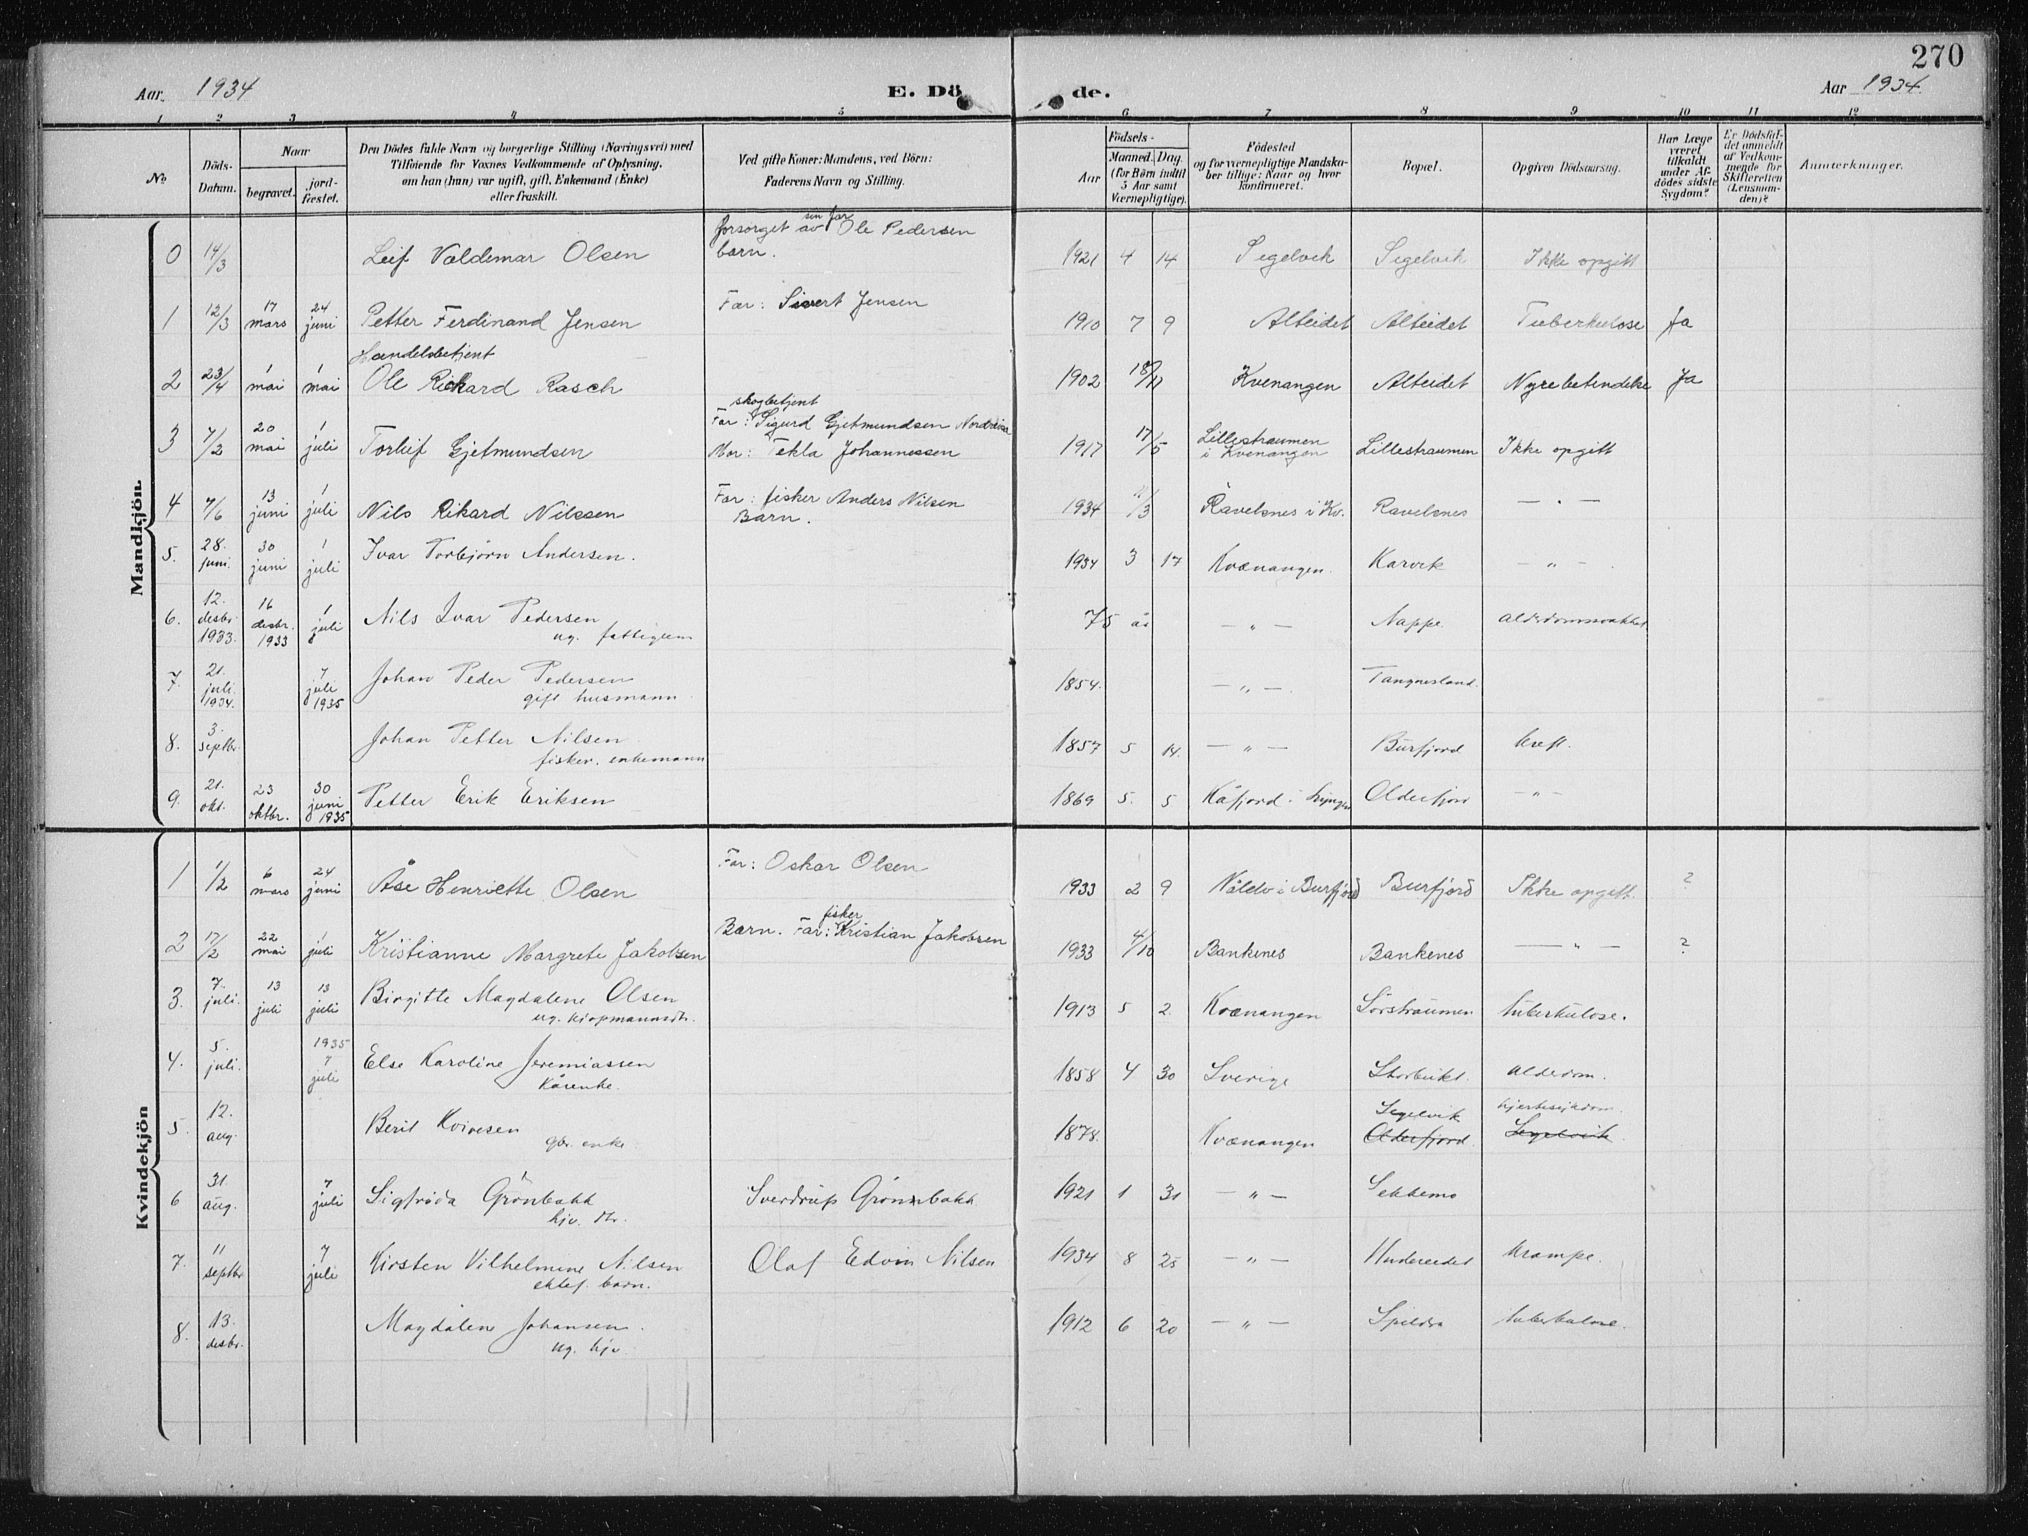 270
Aar. 1934 E. Dö de. Aar 1934.
1 2 3 4 5 6 7 8 9 10 11 12
No
Döds-Datum.
Naar
begravet.
jord-fæstet.
Den Dödes fulde Navn og borgerlige Stilling (Næringsvei) med
Tilföiende for Voxnes Vedkommende af Oplysning,
om han (hun) var ugift, gift, Enkemand (Enke)
eller fraskilt.
Ved gifte Koner: Mandens, ved Börn:
Faderens Navn og Stilling.
Födsels-
Aar
Maaned. Dag.
(for Börn indtil
5 Aar samt
Værnepligtige).
Födested
og for værnepligtige Mandska-
ber tillige: Naar og hvor
konfirmeret.
Bopæl.
Opgiven Dödsaarsag.
Har Læge
været
tilkaldt
under Af-
dödes sidste
Sygdom?
Er Dödsfal-
det anmeldt
af Vedkom-
mende for
Skifteretten
(Lensman-
den)?
Anmerkninger.
Mandkjön.
0 14/3 Leif Valdemar Olsen forsörget av sin far Ole Pedersen barn. 1921 4 14 Segelvik Segelvik Ikke opgitt
1 12/3 17 mars 24 juni Petter Ferdinand Jensen Far: Sivert Jensen 1910 7 9 Alteidet Alteidet Tuberkulose Ja
2 23/4 1 mai 1 mai Handelsbetjent Ole Rickard Rasch 1902 18/11 Kvenangen Alteidet Nyrebetendelse Ja
3 7/2 20 mai 1 juli Torleif Gjetmundsen Far: skogbetjent Sigurd Gjetmundsen Mor: Tekla Johannessen 1917 17/5 Lillestraumen i Kvenangen Lillestraumen Ikke opgitt
4 7/6 13 juni 1 juli Nils Rikard Nilssen Far: fisker Anders Nilsen Barn. 1934 /3 Ravelsnes i Kv. Ravelsnes — " —
5. 28. juni. 30 juni 1 juli Ivar Torbjörn Andersen. 1934 3 17 Kvænangen. Karvik — " — .
6. 12. desbr. 1933. 16 desbr. 1933 1 juli Nils Ivar Pedersen ug. fattiglem 75 år — " — Nappe.
7. 21. juli. 1934. 7 juli 1935 Johan Peder Pedersen gift husmann. 1854. — " — . Tangnesland.
8. 3. septbr. Johan Petter Nilsen fisker. enkemann 1857 5 14. — " — Burfjord kreft.
9. 21. okt. 23 oktbr. 30 juni 1935 Petter Erik Eriksen 1869 5. 5 Kåfjord i Lyngen Olderfjord — " —
Kvindekjön
1 1/2 6 mars 24 juni Åse Henriette Olsen Far: Oskar Olsen 1933 2 9 i Burfjord Burfjord Ikke opgitt. ?
2 17/2 22 mai 1 juli Kristianne Margrete Jakobsen Barn. Far: fisker Kristian Jakobsen 1933 4/10 Bankenes Bankenes — " — ?
3. 7. juli. 13 juli 13 juli Birgitte Magdalene Olsen ug. kjøpmannsdtr. 1913 5 2. Kvænangen Sörstraumen tuberkulose.
4. 5. juli. 1935 7 juli Else Karoline Jeremiassen Kårenke. 1858 4 30 Sverige Storbukt. alderdom.
5. 12. aug. Berit Kvivesen gbr. enke. 1878. Kvænangen Segelvik Olderfjord hjertesykdom. Segelvik.
6 31. aug. 7 juli Sigfrida Grönbakk hjv. dtr. Sverdrup Grönnbakk 1921 1 31 — " — Sekkemo
7. 11 septbr 7 juli Kirsten Vilhelmine Nilsen ektef. barn. Olaf Edvin Nilsen 1934 8 25 — " — Undereidet krampe.
8. 13. desbr. Magdalene Johansen. ug. hjv. 1912 6 20 — " — Spildra tuberkulose.